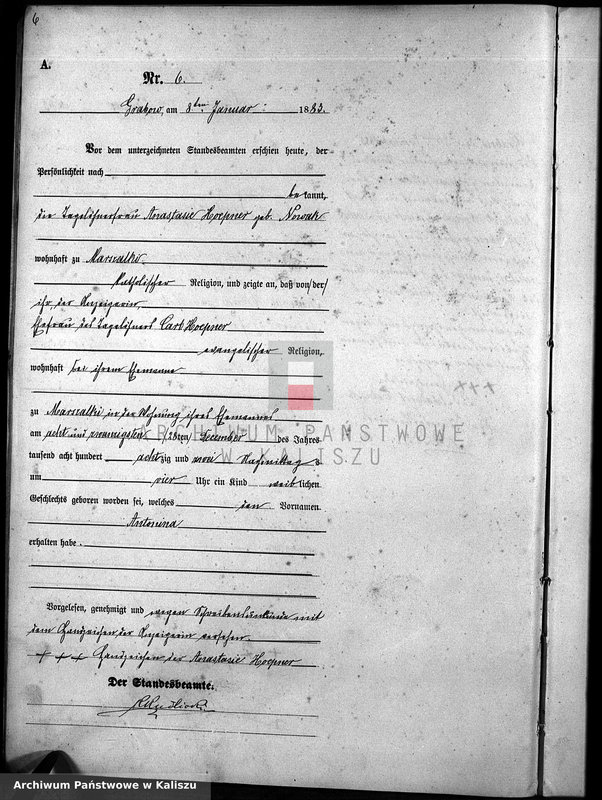 6
A.
Nr. 6.
Grabow, am 3ten Januar 1883.
Vor dem unterzeichneten Standesbeamten erschien heute, der
Persönlichkeit nach
bekannt,
die Tagelöhnerfrau Anastasie Hoepner geb. Nowak
wohnhaft zu Marszalki
katholischer Religion, und zeigte an, daß von der
ihr, der Anzeigerin,
Ehefrau des Tagelöhners Carl Hoepner
evangelischer Religion,
wohnhaft bei ihrem Ehemanne
zu Marszalki in der Wohnung ihres Ehemannes
am acht und zwanzigsten (28ten) Dezember des Jahres
tausend acht hundert achtzig und zwei Nachmittag s
um vier Uhr ein Kind weiblichen
Geschlechts geboren worden sei, welches den Vornamen
Antonina
erhalten habe.
Vorgelesen, genehmigt und wegen Schreibensunkunde mit
dem Handzeichen der Anzeigerin versehen.
+ + + Handzeichen der Anastasie Hoepner
Der Standesbeamte.
ARCHIWUM PAŃSTWOWE
W KALISZU
Archiwum Państwowe w Kaliszu